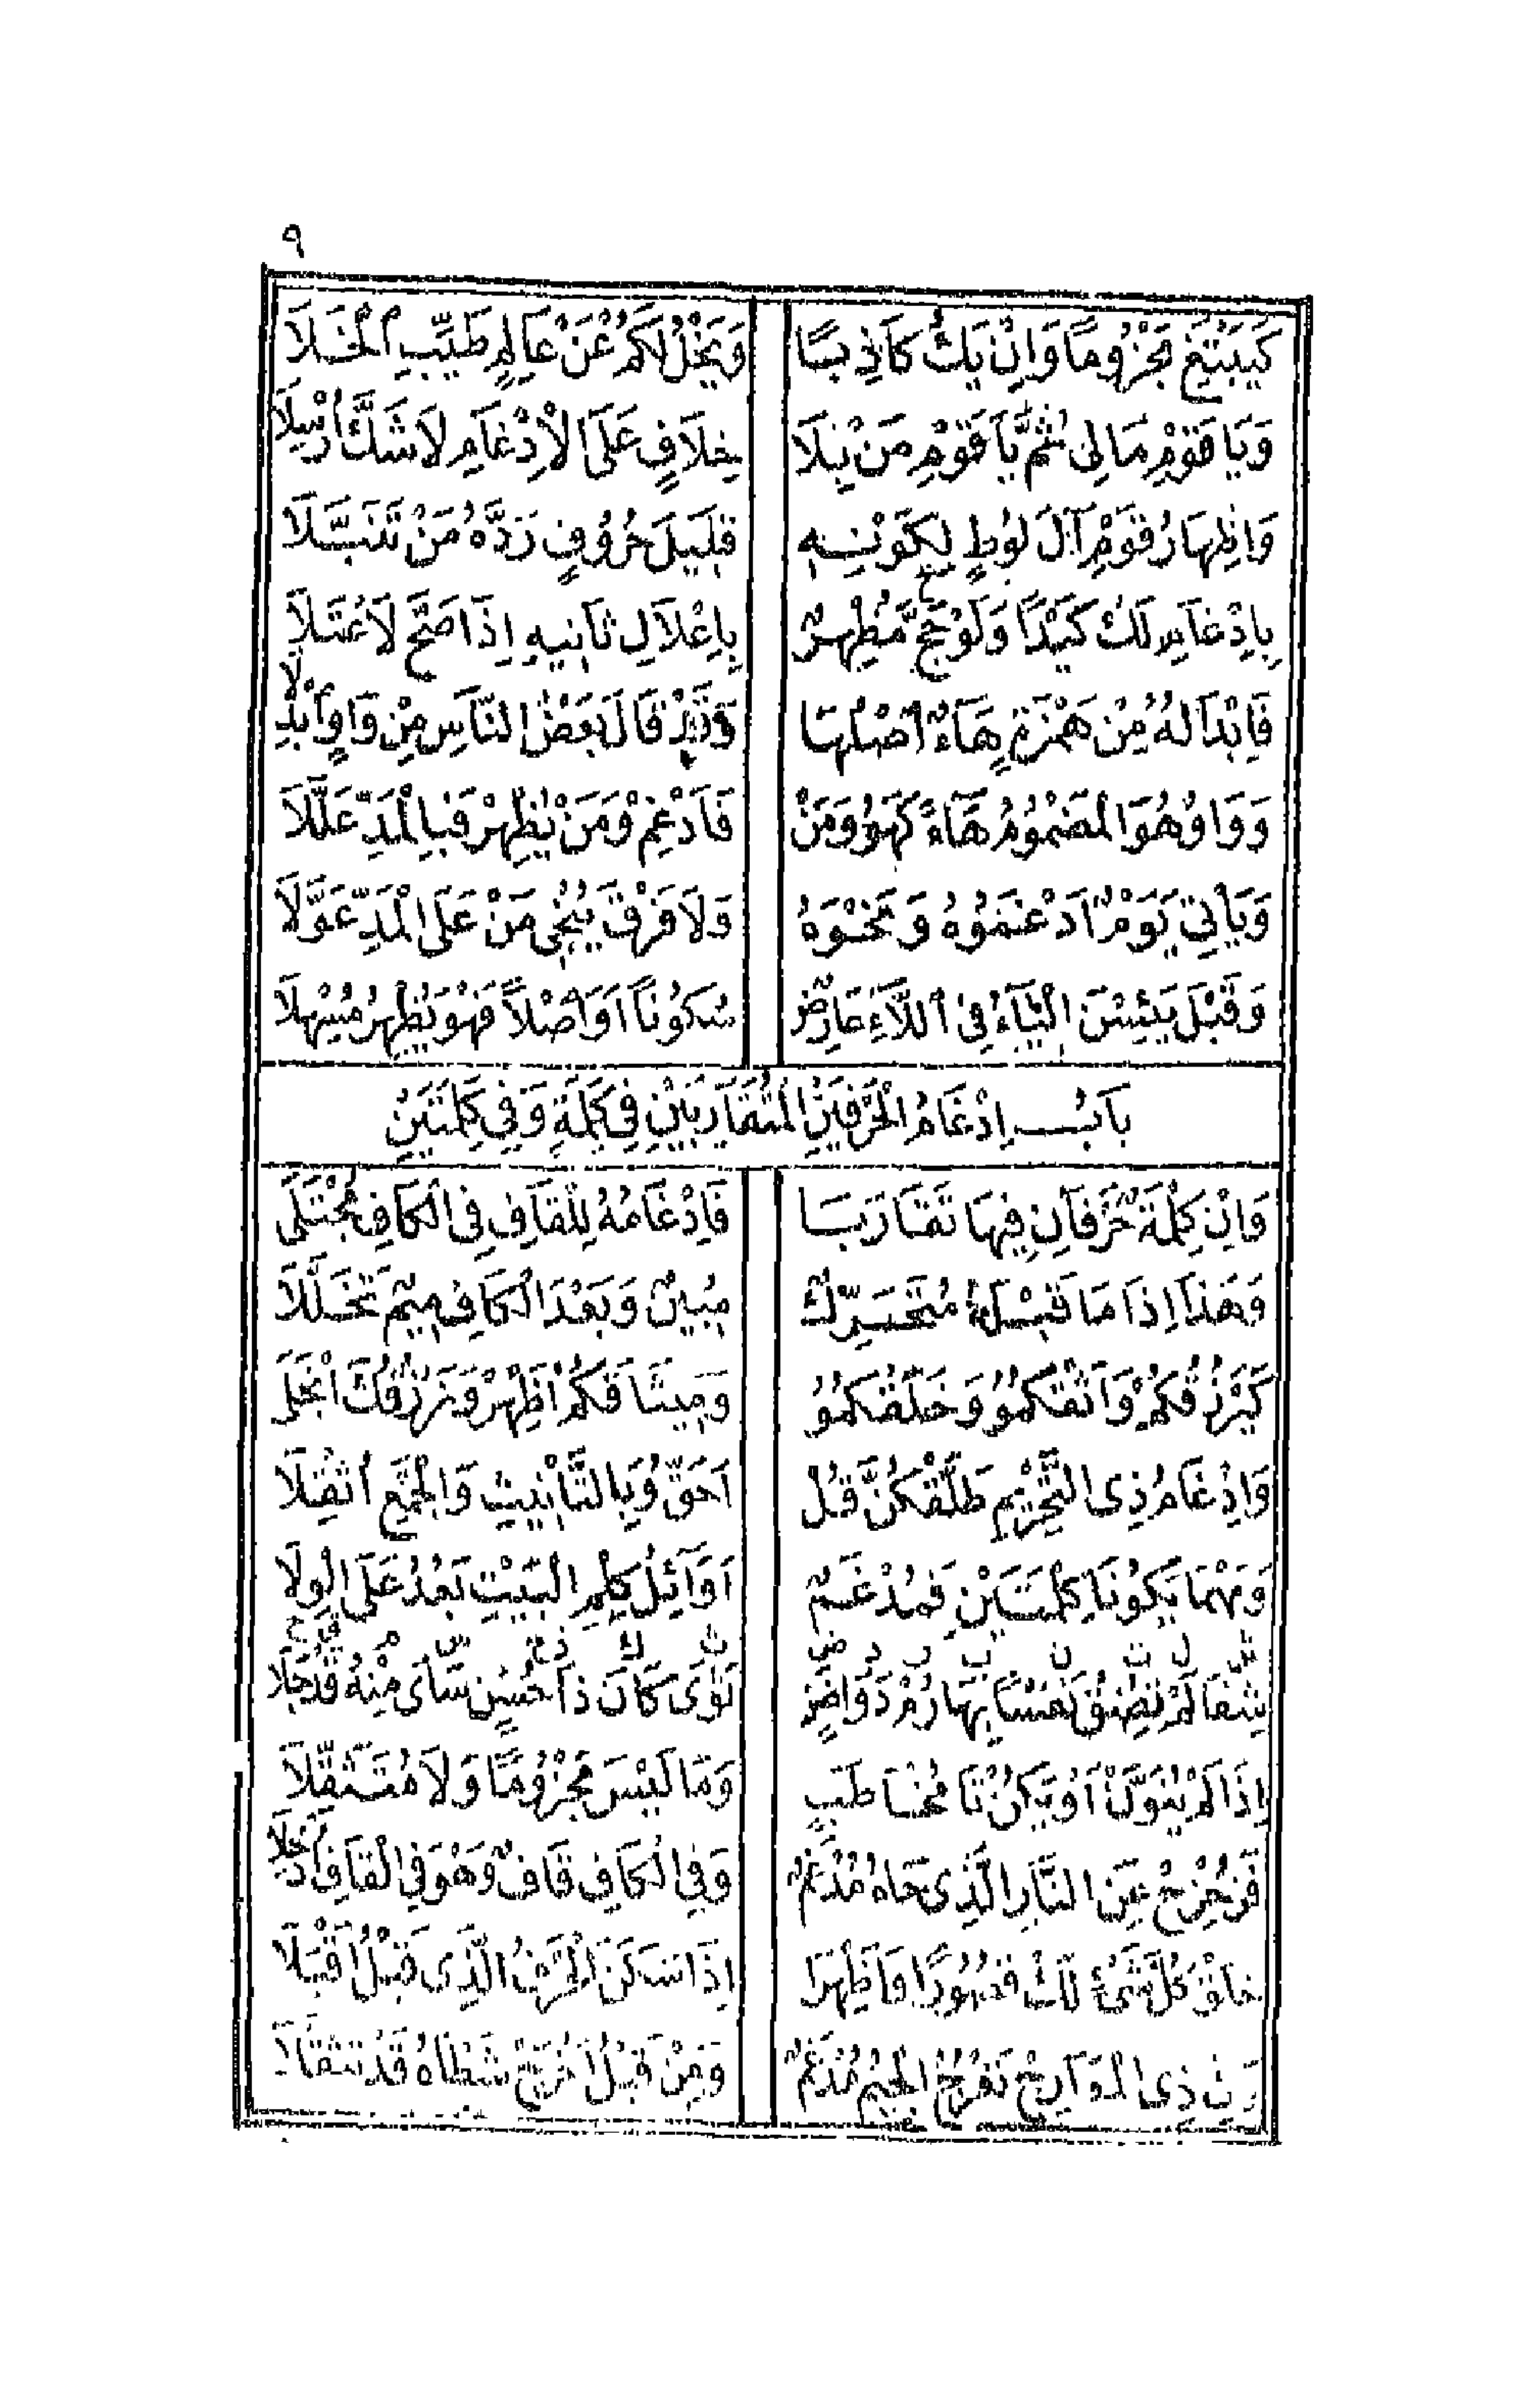 ٩
كَيَبْتَغِ مَجْزُومًا وَاِنْ يَكُ كَاذِبًا وَيَخْلُ لَكُمْ عَنْ عَالِمٍ طَيِّبِ الْخَلَا
وَيَا قَوْمِ مَالِى ثُمَّ يَا قَوْمِ مَنْ بِلَا خِلَافٍ عَلَى الْاِدْغَامِ لَا شَكَّ اُرْسِلَا
وَاِظْهَارُ قَوْمٍ آلَ لُوطٍ لِكَوْنِهِ قَلِيلَ حُرُوفٍ رَدَّهُ مَنْ تَنَبَّلَا
بِاِدْغَامِ لَكَ كَيْدًا وَلَوْ حَجَّ مُظْهِرٌ بِاِعْلَالِ ثَانِيهِ اِذَا صَحَّ لَاعْتَلَا
فَاِبْدَالُهُ مِنْ هَمْزَةٍ هَاءٌ اَصْلُهَا وَقَدْ قَالَ بَعْضُ النَّاسِ مِنْ وَاوٍ اُبْدِلَا
وَوَاوُ هُوَ الْمَضْمُومُ هَاءً كَهُوْ وَمَنْ فَاَدْغِمْ وَمَنْ يُظْهِرْ فَبِالْمَدِّ عَلَّلَا
وَيَأْتِىَ يَوْمٌ اَدْغَمُوهُ وَنَحْوَهُ وَلَا فَرْقَ يُنْجِى مَنْ عَلَى الْمَدِّ عَوَّلَا
وَقَبْلَ يَئِسْنَ الْيَاءُ فِى اللَّاءِ عَارِضٌ سُكُونًا اَوَ اَصْلًا فَهْوَ يُظْهِرُ مُسْهِلَا
بَابُ اِدْغَامِ الْحَرْفَيْنِ الْمُتَقَارِبَيْنِ فِى كَلِمَةٍ وَفِى كَلِمَتَيْنِ
وَاِنْ كِلْمَةٌ حَرْفَانِ فِيهَا تَقَارَبَا فَاِدْغَامُهُ لِلْقَافِ فِى الْكَافِ مُجْتَلَى
وَهَذَا اِذَا مَا قَبْلَهُ مُتَحَرِّكٌ مُبِينٌ وَبَعْدَ الْكَافِ مِيمٌ تَخَلَّلَا
كَيَرْزُقْكُمُ وَاثَقْكُمُو وَخَلَقْكُمُو وَمِيثَاقَكُمْ اَظْهِرْ وَنَرْزُقُكَ انْجَلَى
وَاِدْغَامُ ذِى التَّحْرِيمِ طَلَّقَكُنَّ قُلْ اَحَقُّ وَبِالتَّأْنِيثِ وَالْجَمْعِ اُثْقِلَا
وَمَهْمَا يَكُونَا كِلْمَتَيْنِ فَمُدْغَمٌ اَوَائِلُ كِلْمِ الْبَيْتِ بَعْدُ عَلَى الْوِلَا
ش ل ت ن ب ر د ض ث ك ذ ح س م ق ج
شِفَا لَمْ تَضِقْ نَفْسًا بِهَا رُمْ دَوَاضَنٍ ثَوَى كَانَ ذَا حُسْنٍ سَأَى مِنْهُ قَدْ جَلَا
اِذَا لَمْ يُنَوَّنْ اَوْ يَكُنْ تَا مُخَاطَبٍ وَمَا لَيْسَ مَجْزُومًا وَلَا مُتَثَقِّلَا
فَزُحْزِحَ عَنِ النَّارِ الَّذِى حَاهُ مُدْغَمٌ وَفِى الْكَافِ قَافٌ وَهْوَ فِى الْقَافِ اُدْخِلَا
خَلَقْ كُلَّ شَىْءٍ لَكْ قُصُورًا وَاَظْهَرَا اِذَا سَكَنَ الْحَرْفُ الَّذِى قَبْلُ اَقْبَلَا
وَفِى ذِى الْمَعَارِجْ تَعْرُجُ الْجِيمُ مُدْغَمٌ وَمِنْ قَبْلُ اَخْرَجْ شَطْأَهُ قَدْ تَثَقَّلَا